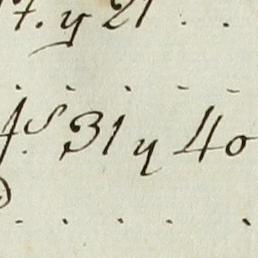 7. y 21 . .
f.s 31 y 40
. . . . .